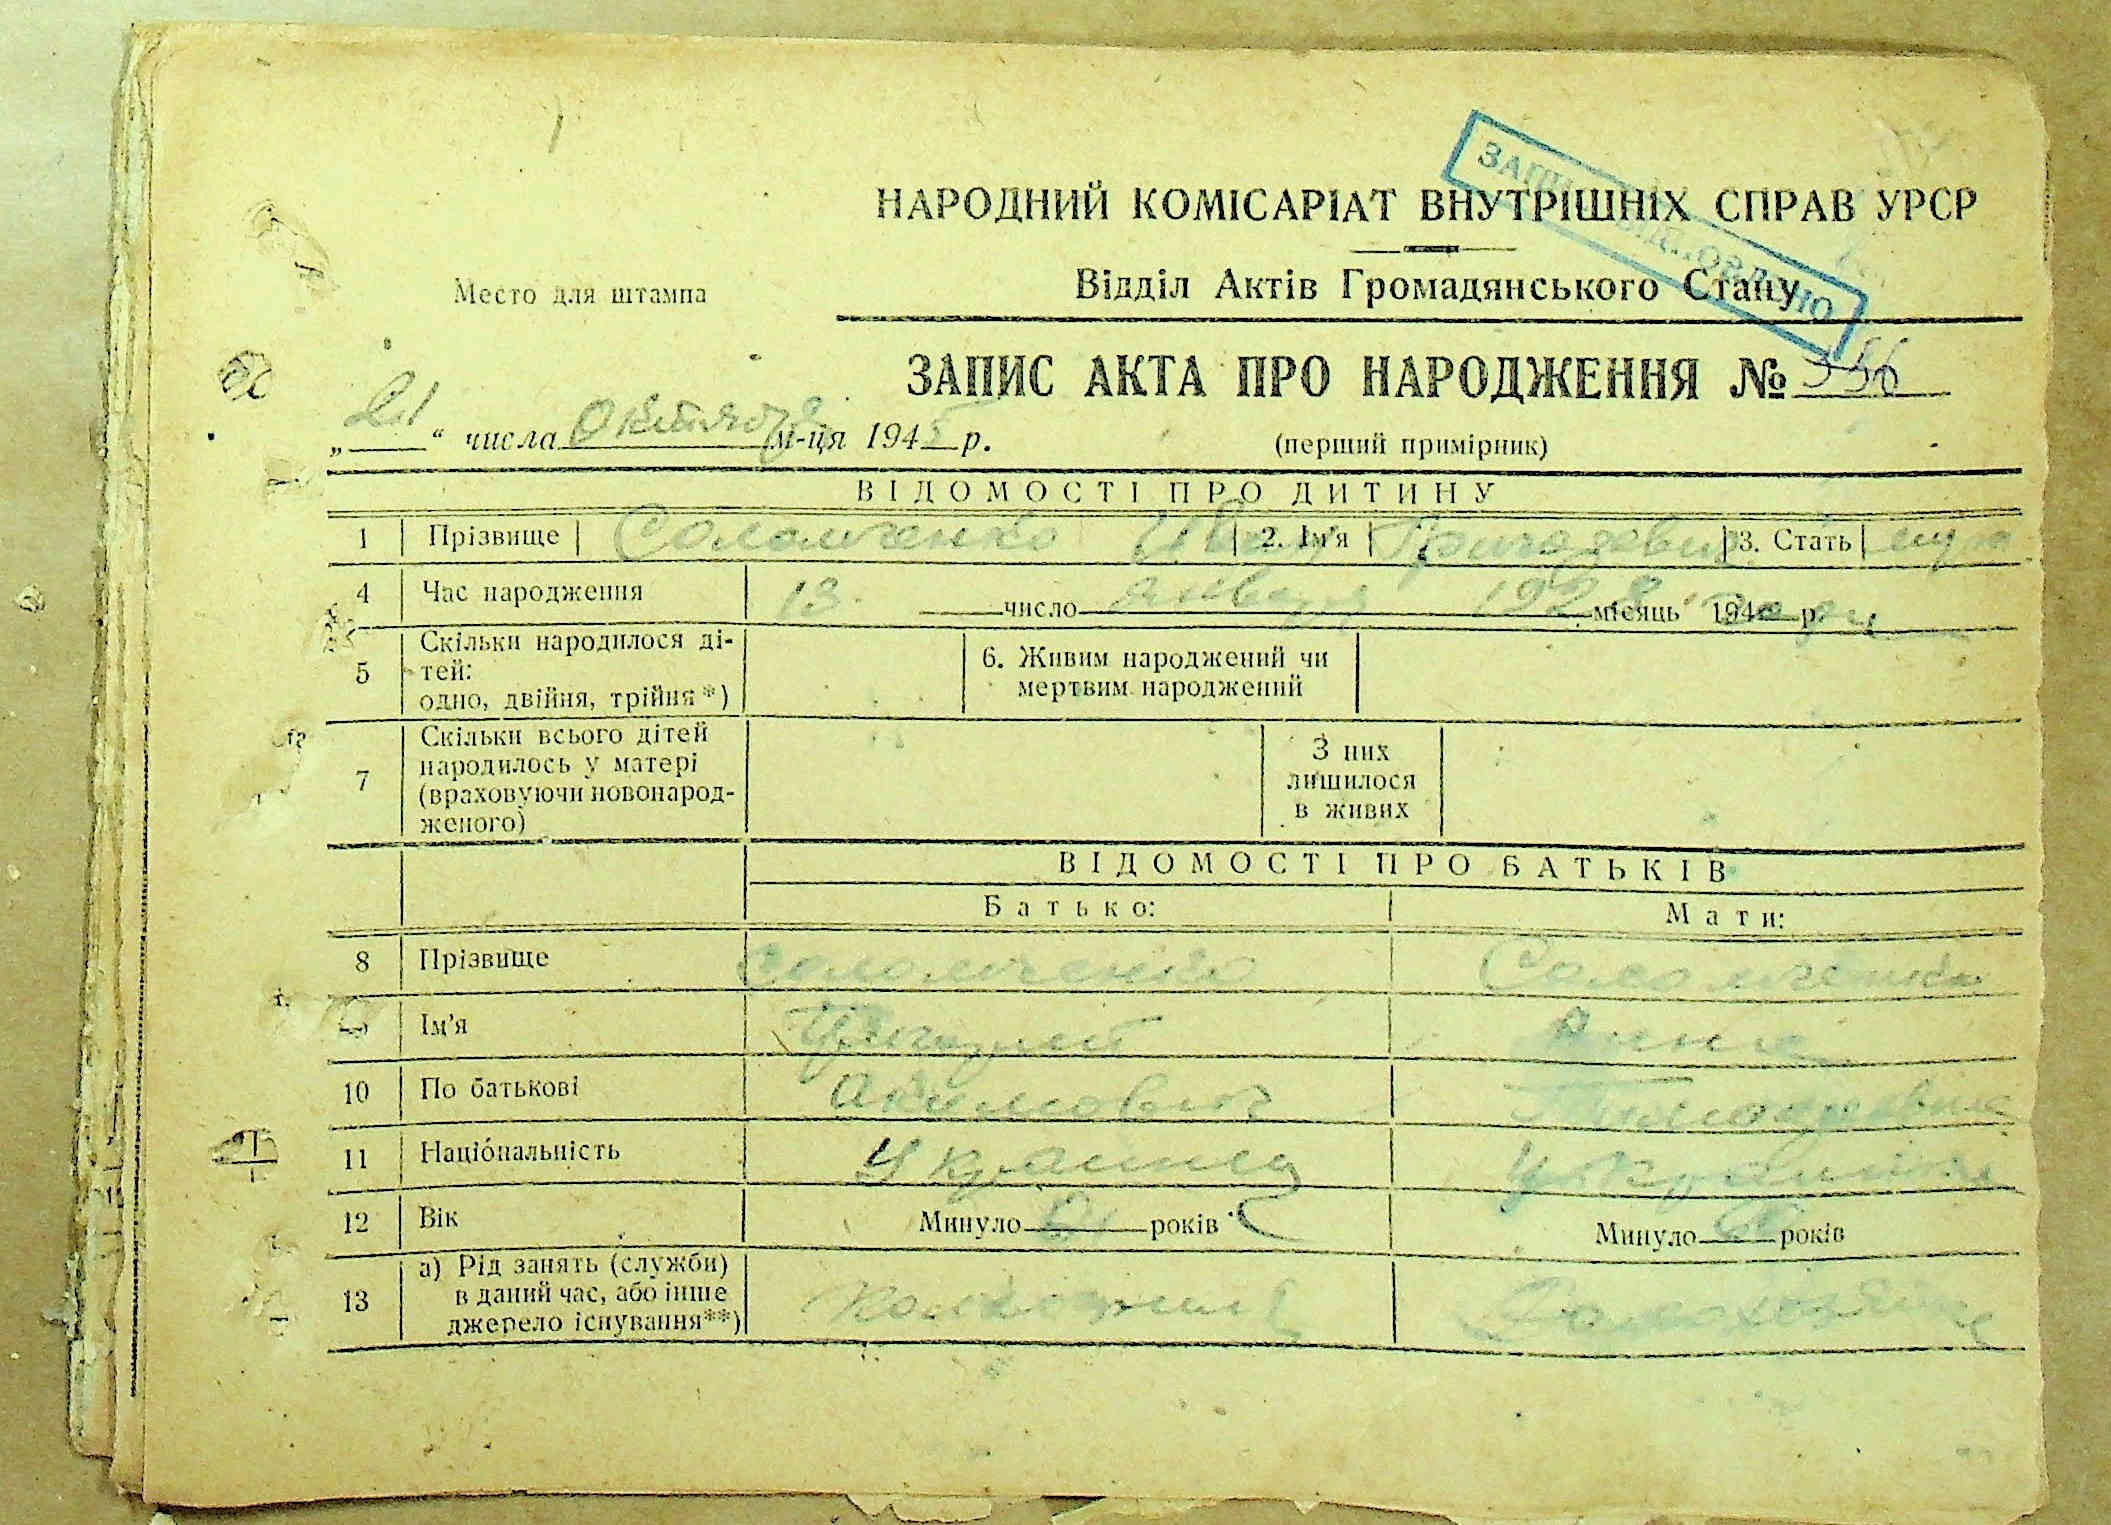 НАРОДНИЙ КОМІСАРІАТ ВНУТРІШНІХ СПРАВ УРСР
Место для штампа
Відділ Актів Громадянського Стану
ЗАПИС АКТА ПРО НАРОДЖЕННЯ № 356
„21“ числа Октября м-ця 1945 р.
(перший примірник)
ВІДОМОСТІ ПРО ДИТИНУ
1 Прізвище Соломченко Иван 2. Ім'я Григорьевич 3. Стать муж
4 Час народження 13 число января 1928 місяць 194 р. года
5 Скільки народилося ді-
тей:
одно, двійня, трійня*)
6. Живим народжений чи
мертвим народжений
7 Скільки всього дітей
народилось у матері
(враховуючи новонарод-
женого)
З них
лишилося
в живих
ВІДОМОСТІ ПРО БАТЬКІВ
Батько: Мати:
8 Прізвище Соломченко Соломченко
Ім'я Григорий Анна
10 По батькові Акимович Тимофеевна
11 Національність Украинец Украинка
12 Вік Минуло років Минуло років
13 а) Рід занять (служби)
в даний час, або інше
джерело існування**)
колхозник Домохозяйка